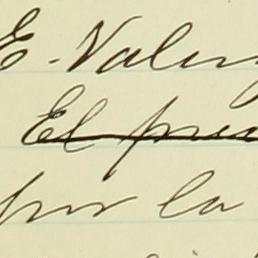 E. Valer
El pre
por la